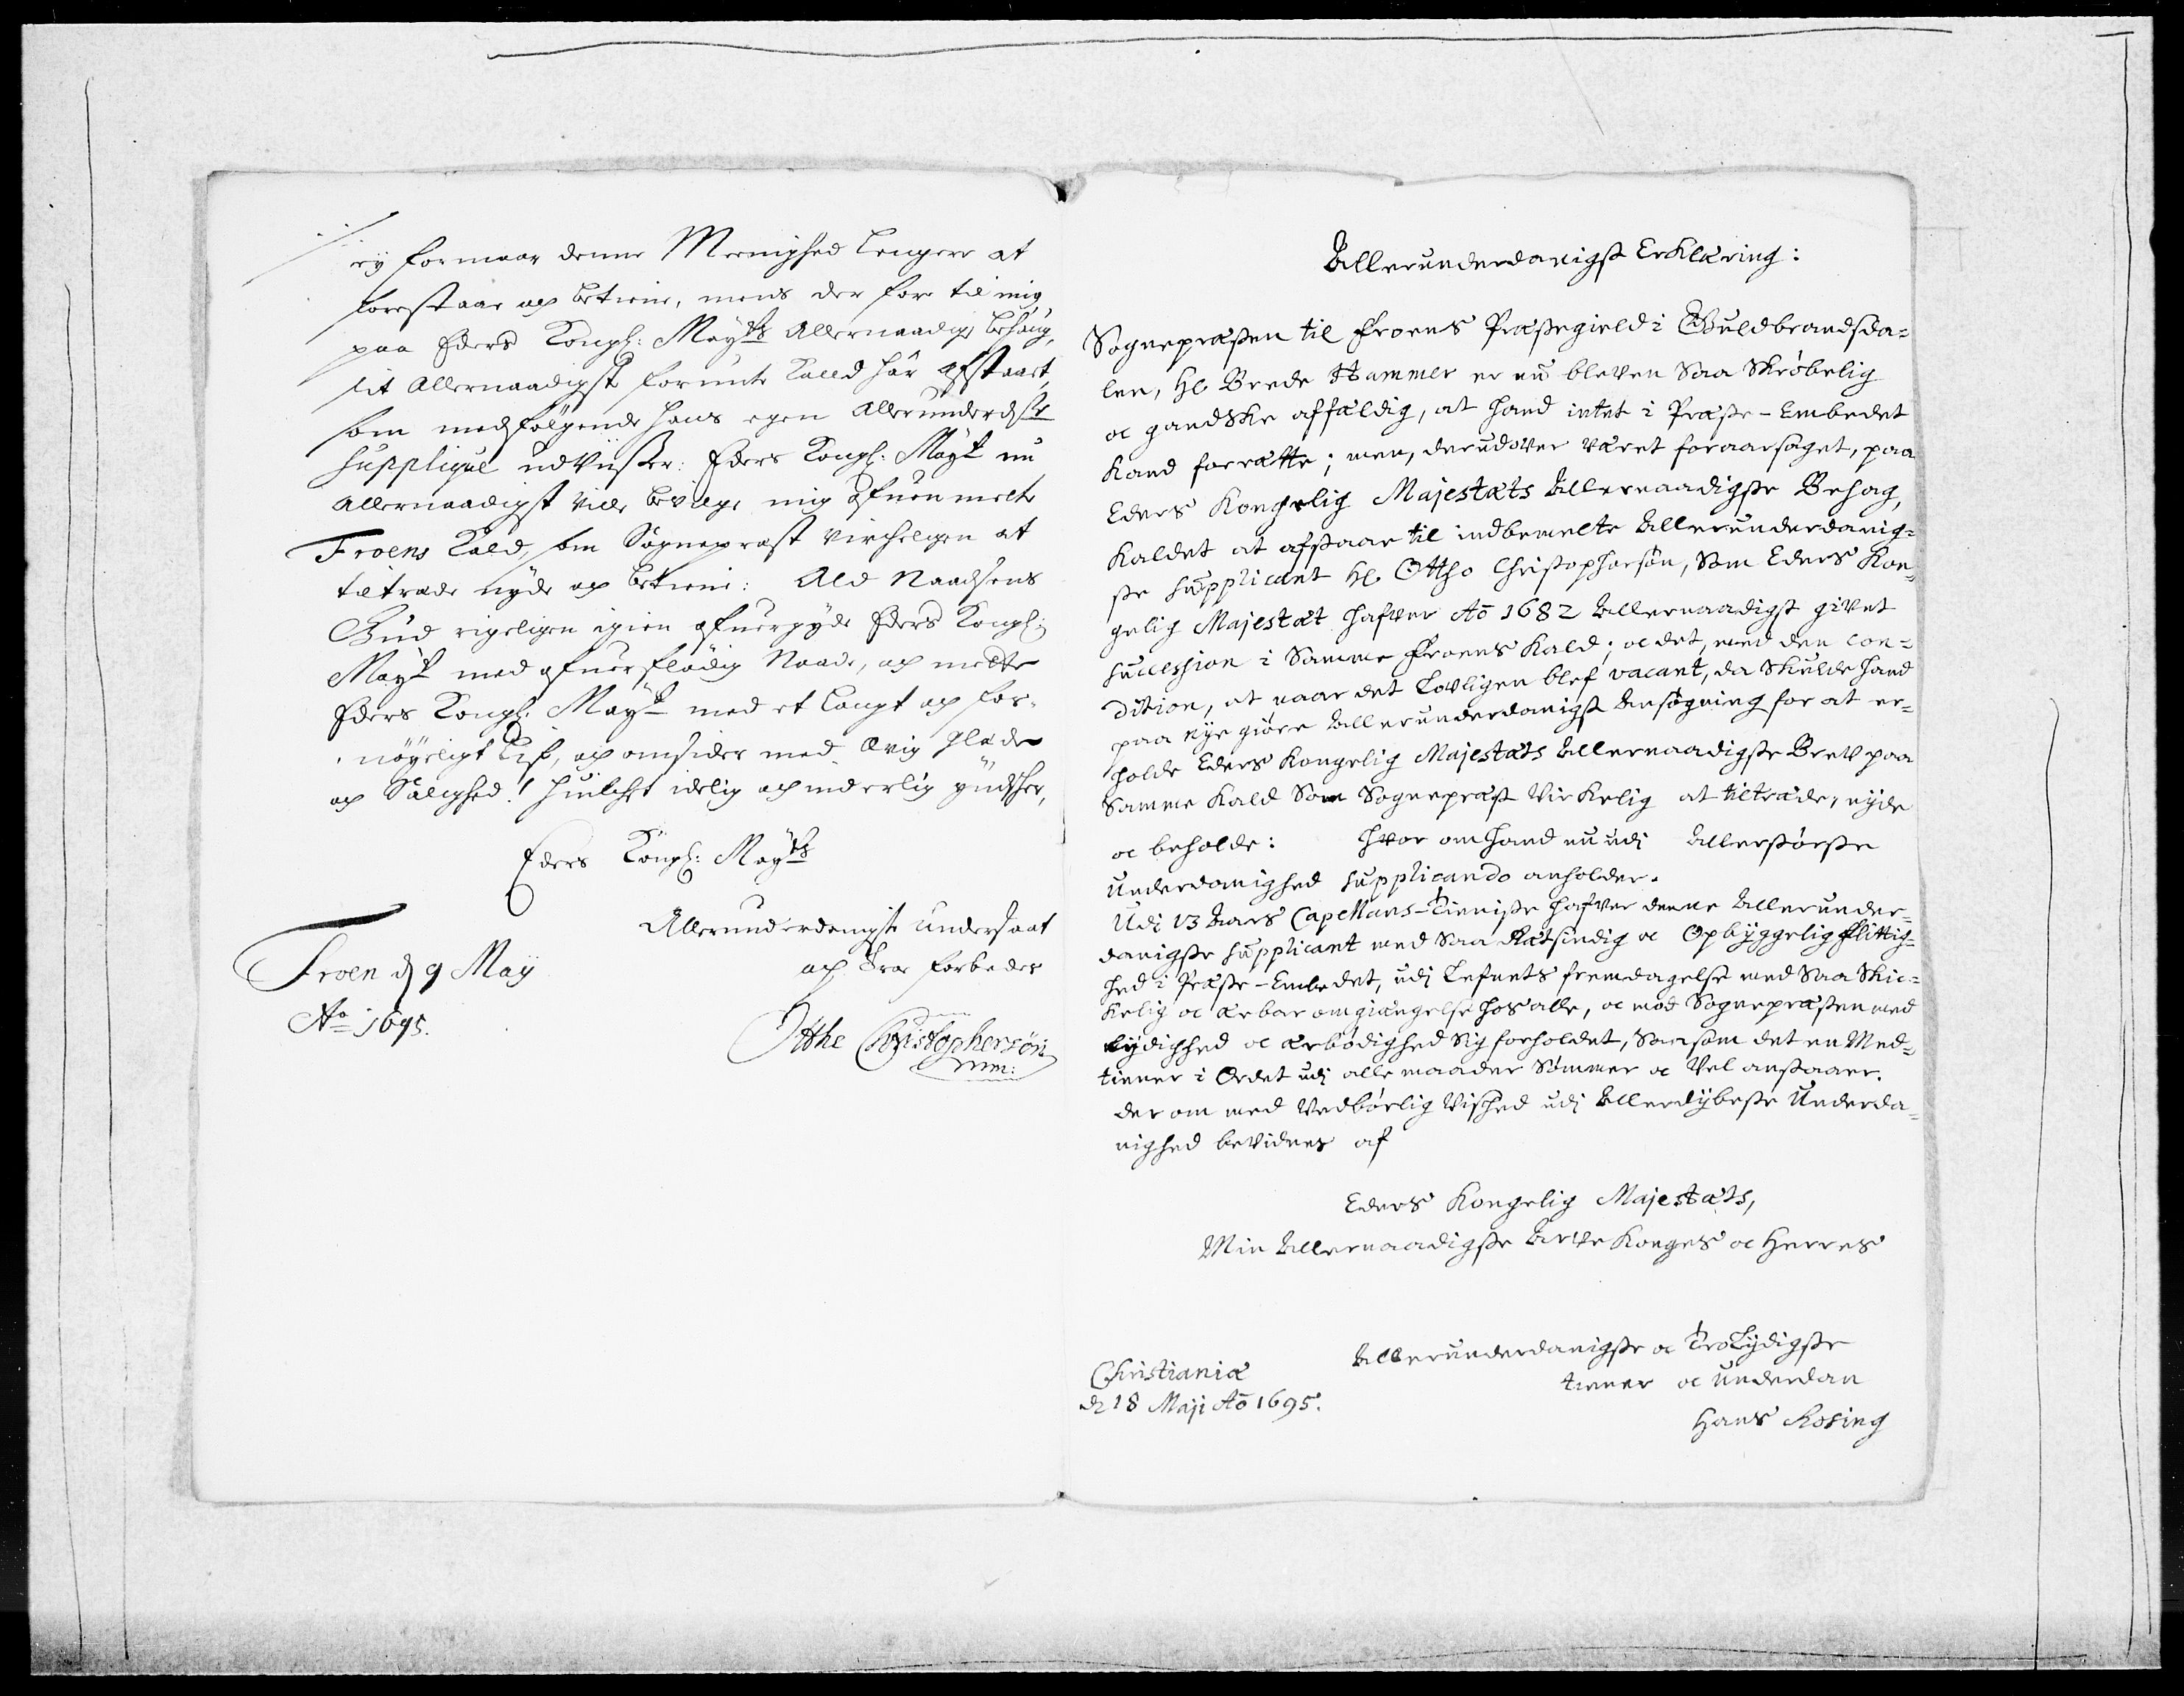 ey formaar denne Meenighed lengere at
forestaae og betiene, mens der fore til mig,
paa Eders Kongl: Mayts allernaadigst behaug,
sit allernaadigste forunte Kald har afstaaet,
som medfölgende hans egen allerunderdste
supplique udviiser: Eders Kongl: Mayt nu
allernaadigst ville bevilge mig ofuenmelte
Froens Kald, som Sognepræst virchelgen at
tiltræde nyde og betiene: Ald Naadsens
Gud rigeligen igien ofuergyde Eders Kongl:
Mayt med ofuerflödig Naade, og mætte
Eders Kongl: Mayt med et langt og for-
nöyeligt Lif, og omsider med Ævig Glæde
og Salighed! Huilchet idelig og inderlig yndsker,
Eders Kongl: Mayts
Allerunderdanigste undersaat
og Troe forbeder
Froen d 9 Maÿ
Ao 1695.
Otthe Christophersön
mm:
Allerunderdanigst Erklæring:
Sognepræsten til Froens Præstegield i Guldbrandsda=
len, Hl Brede Hammer er nu bleven saa skröbelig
oc gandske affældig, at hand intet i Præste-Embedet
kand forrætte; men, derudover været foraarsaget, paa
Eders Kongelig Majestæts Allernaadigste Behag,
Kaldet at afstaae til indbemelte Allerunderdanig=
ste Supplicant Hl. Ottho Christophersön, som Eders Kon=
gelig Majestæt hafver Aō 1682 Allernaadigst givet
succession i samme Froens Kald; oc det, med den con=
dition, at naar det Lovligen blef vacant, da skulde hand
paa nye giöre Allerunderdanigst Ansögning for at er=
holde Eders Kongelig Majestæts Allernaadigste Brev paa
samme Kald som Sognepræst virkelig at tiltræde, nyde
oc beholde: Hvor om hand nu udj Allerstörste
Underdanighed supplicando anholder.
Udi 13 Aars Capellans-Tieniste hafver denne Allerunder=
danigste Supplicant med saa Rætsindig oc Opbyggelig flittig=
hed i Præste-Embedet, udj Lefnets fremdragelse med saa skic=
kelig oc ærbar omgiængelse hos alle, oc mod Sognepræsten med
lydighed oc ærbödighed sig forholdet, saasom det en Med=
tiener i Ordet udj alle maader sömmer oc vel anstaaer.
der om med vedbörlig vished udj Allerdybeste Underda=
nighed bevidnes af
Eders Kongelig Majestæts,
Min Allernaadigste Arve Konges oc Herres
Allerunderdanigste oc Troe Lydigste
tiener oc Underdan
Christianiæ
d 18 Maji Aō 1695.
Hans Rosing